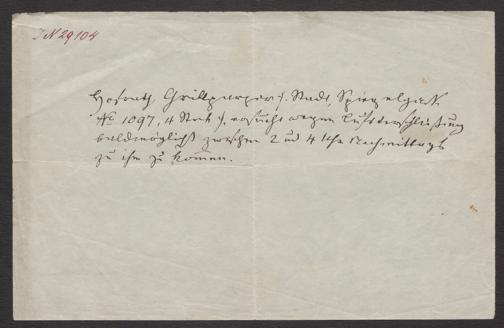 IN 29104
Hofrath Grillparzer /: Stadt, Spiegelgasse
No 1097, 4 Stock :/ ersucht wegen
baldmöglichst zwischen 2 und 4 Uhr Nachmittags
zu ihm zu kommen.